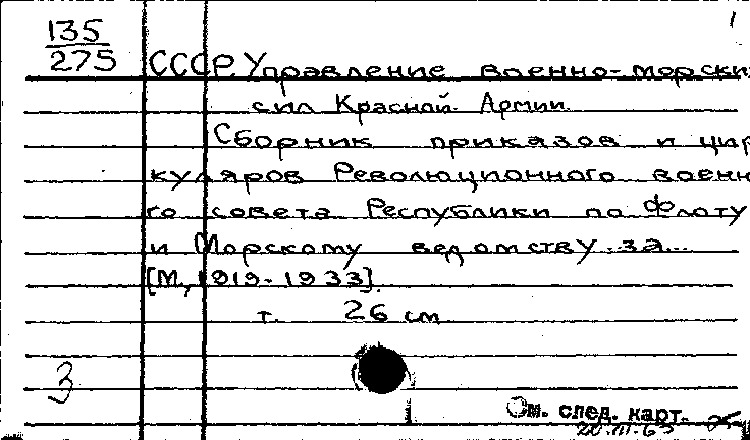 1
135
275 СССР. Управление военно-морских
сил Красной Армии.
Сборник приказов и цир
куляров Революционного военн
го совета Республики по Флоту
и Морскому ведомству за...
[М., 1919-1933].
т. 26 см
3
См. след. карт.